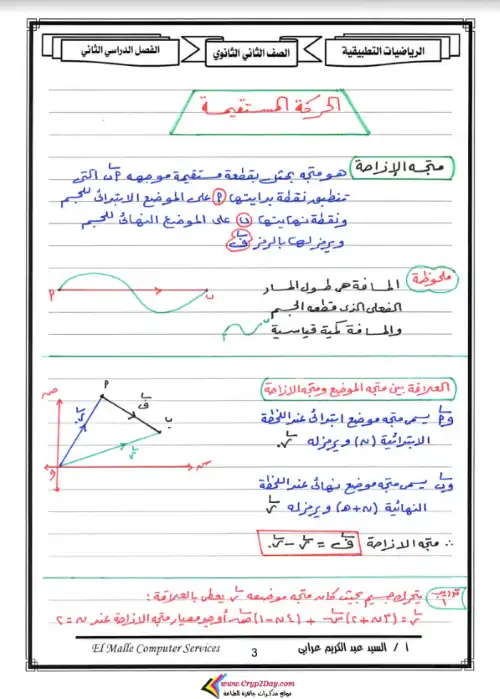 الرياضيات التطبيقية
الصف الثاني الثانوي
الفصل الدراسي الثاني
الحركة المستقيمة
متجه الإزاحة
هو متجه يمثل بقطعة مستقيمة موجهة أب التى
تنطبق نقطة بدايتها أ على الموضع الابتدائى للجسم
ونقطة نهايتها ب على الموضع النهائى للجسم
ويرمز لها بالرمز ف
ملحوظة
المسافة هى طول المسار
الفعلى الذى قطعه الجسم
والمسافة كمية قياسية
أ
ب
أ
ب
العلاقة بين متجه الموضع ومتجه الإزاحة
وأ يسمى متجه موضع ابتدائى عند اللحظة
الابتدائية (ن) ويرمز له ر.
وب يسمى متجه موضع نهائى عند اللحظة
النهائية (ن+هـ) ويرمز له ر
∴ متجه الازاحة ف = ر - ر.
ص
أ
ف
ب
ر.
ر
و
س
تدريب ١
يتحرك جسيم بحيث كان متجه موضعه ر يعطى بالعلاقة :
ر = (٣ن + ٢) س + (٤ن - ١) ص أوجد معيار متجه الازاحة عند ن = ٢
El Malle Computer Services
3
أ / السيد عبد الكريم عرابي
www.Cryp2Day.com
موقع مذكرات جاهزة للطباعة